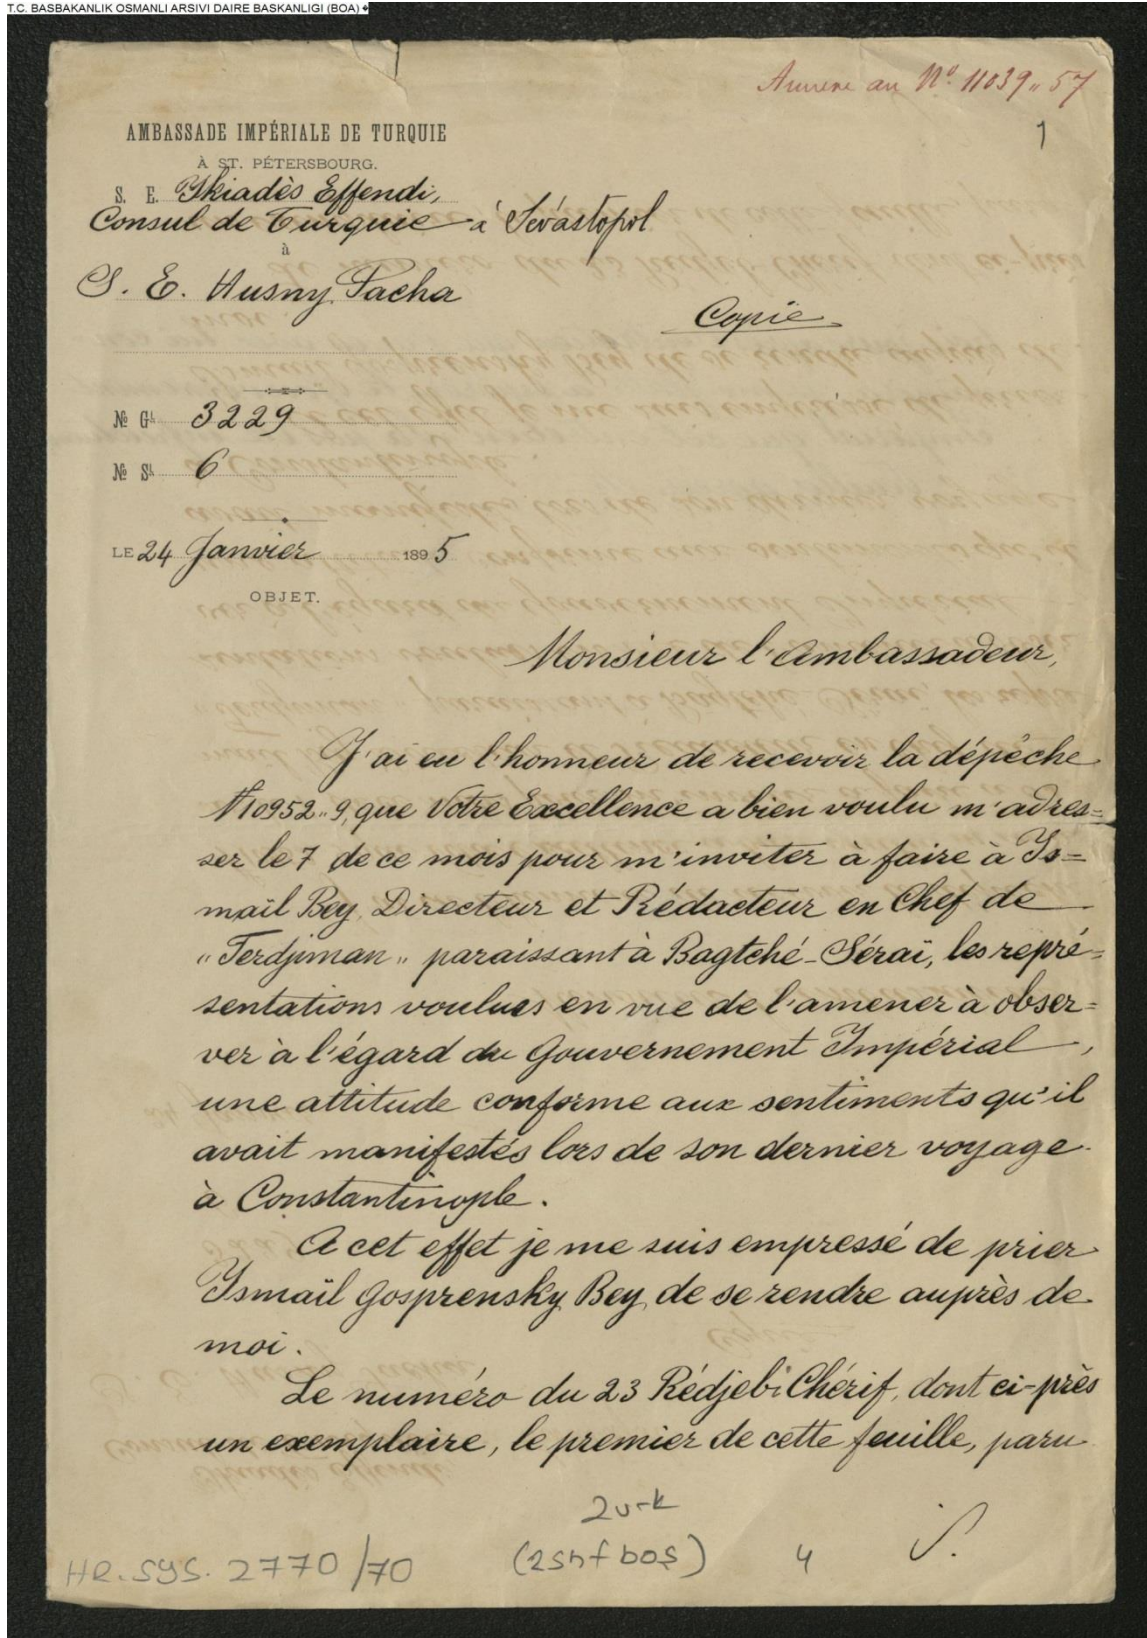 T.C. BASBAKANLIK OSMANLI ARSIVI DAIRE BASKANLIGI (BOA)
Annexe au Nº 11039„57
1
AMBASSADE IMPÉRIALE DE TURQUIE
À ST. PÉTERSBOURG.
S. E. Skiadès Effendi,
Consul de Turquie à Sévastopol
à
S. E. Husny Pacha
Copie
№ Gl 3229
№ Sl 6
LE 24 Janvier 1895
OBJET.
Monsieur l'Ambassadeur,
J'ai eu l'honneur de recevoir la dépêche
N10952„9, que Votre Excellence a bien voulu m'adres=
ser le 7 de ce mois pour m'inviter à faire à Is=
maïl Bey, Directeur et Rédacteur en Chef de
„Terdjiman„ paraissant à Bagtché-Séraï, les repré=
sentations voulues en vue de l'amener à obser=
ver à l'égard du Gouvernement Impérial,
une attitude conforme aux sentiments qu'il
avait manifestés lors de son dernier voyage
à Constantinople.
A cet effet je me suis empressé de prier
Ismaïl Gosprensky Bey, de se rendre auprès de
moi.
Le numéro du 23 Rédjebi Chérif, dont ci-près
un exemplaire, le premier de cette feuille, paru
2 vrk
(2 shf boş)
4
HR. SYS. 2770/70